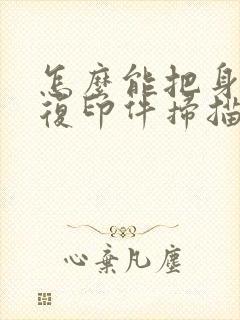 怎麼能把身
復印件掃描
心棄凡塵